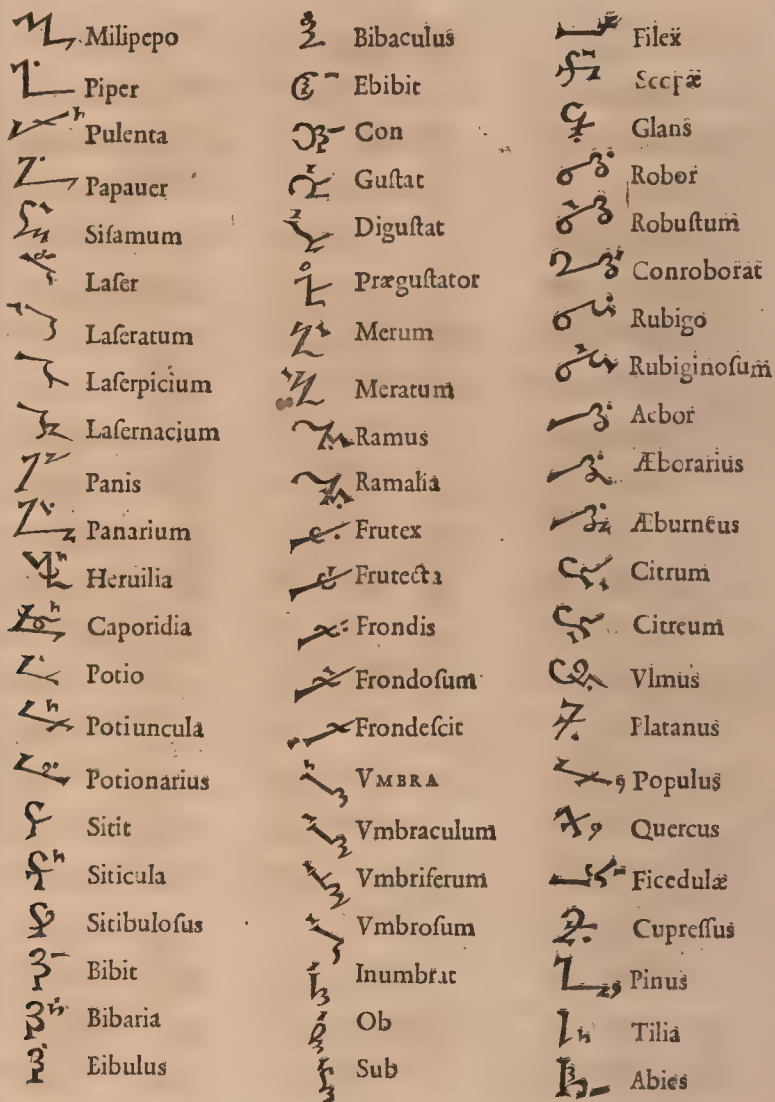 Milipepo
Piper
Pulenta
Papauer
Siſamum
Laſer
Laſeratum
Laſerpicium
Laſernacium
Panis
Panarium
Heruilia
Caporidia
Potio
Potiuncula
Potionarius
Sitit
Siticula
Sitibuloſus
Bibit
Bibaria
Bibulus
Bibaculus
Ebibit
Con
Guſtat
Diguſtat
Præguſtator
Merum
Meratum
Ramus
Ramalia
Frutex
Frutecta
Frondis
Frondoſum
Frondeſcit
VMBRA
Vmbraculum
Vmbriferum
Vmbroſum
Inumbrat
Ob
Sub
Filex
Glans
Robor
Robuſtum
Conroborat
Rubigo
Rubiginoſum
Aebor
Æborarius
Æburneus
Citrum
Citreum
Vlmus
Platanus
Populus
Quercus
Ficedulæ
Cupreſſus
Pinus
Tilia
Abies